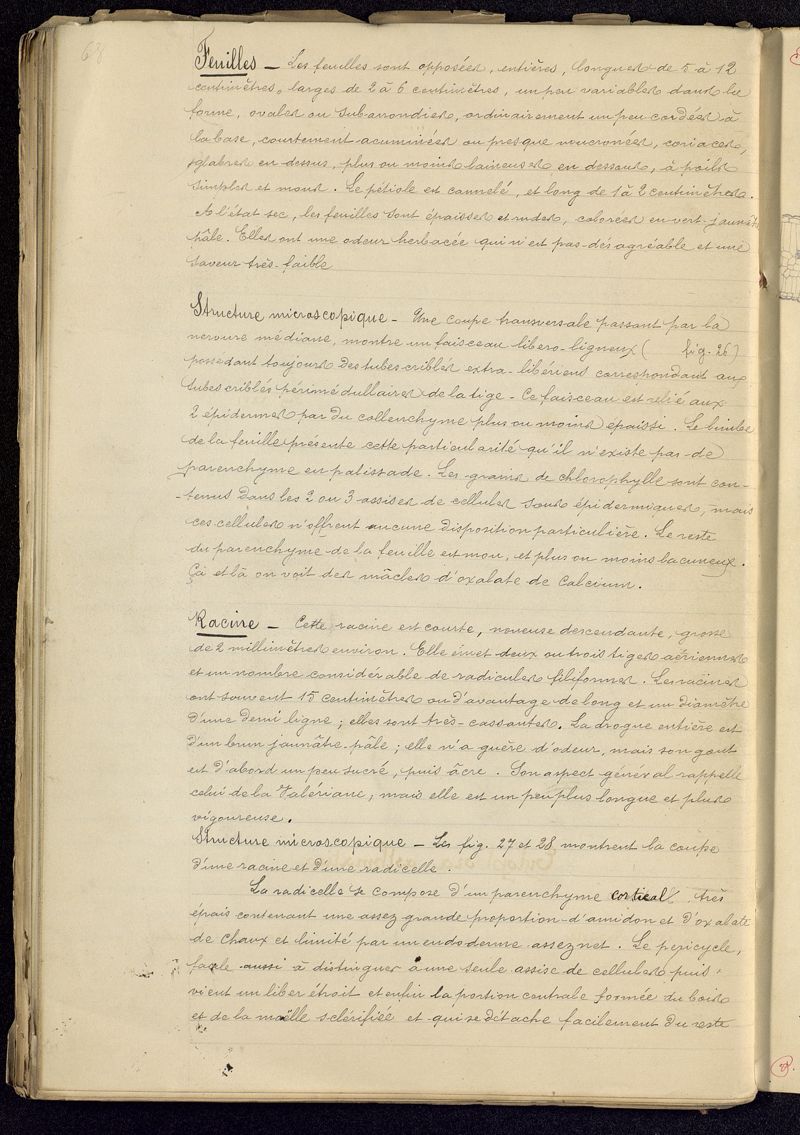 68
Feuilles — Les feuilles sont opposées, entières, longues de 5 à 12
centimètres, larges de 2 à 6 centimètres, un peu variables dans leur
forme, ovales ou subarrondies, ordinairement un peu cordées à
la base, courtement acuminées ou presque mucronées, coriaces,
glabres en dessus, plus ou moins laineuses en dessous, à poils
simples et mous. Le pétiole est cannelé, et long de 1 à 2 centimètres.
A l'état sec, les feuilles sont épaisses et rudes, colorées en vert-jaunâtre
pâle. Elles ont une odeur herbacée qui n'est pas désagréable et une
saveur très-faible
Structure microscopique — Une coupe transversale passant par la
nervure médiane, montre un faisceau libero-ligneux ( fig. 26)
possedant toujours des tubes criblés extra-libériens correspondant aux
tubes criblés périmédullaires de la tige - Ce faisceau est relié aux
2 épidermes par du collenchyme plus ou moins epaissi. Le limbe
de la feuille présente cette particularité qu'il n'existe pas de
parenchyme en palissade. Les grains de chlorophylle sont con-
-tenus dans les 2 ou 3 assises de cellules sous épidermiques, mais
ces cellules n'offrent aucune disposition particulière. Le reste
du parenchyme de la feuille est mou, et plus ou moins lacuneux.
Çà et là on voit des mâcles d'oxalate de Calcium.
Racine — Cette racine est courte, noueuse descendante, grosse
de 2 millimètres environ. Elle émet deux ou trois tiges aériennes
et un nombre considérable de radicules filiformes. Les racines
ont souvent 15 centimètres ou d'avantage de long et un diamètre
d'une demi ligne ; elles sont très-cassantes. La drogue entière est
d'un brun jaunâtre-pâle ; elle n'a guère d'odeur, mais son gout
est d'abord un peu sucré, puis âcre. Son aspect général rappelle
celui de la Valériane ; mais elle est un peu plus longue et plus
vigoureuse.
Structure microscopique — Les fig. 27 et 28 montrent la coupe
d'une racine et d'une radicelle.
La radicelle se compose d'un parenchyme cortical très
épais contenant une assez grande proportion d'amidon et d'oxalate
de chaux et limité par un endoderme assez net. Le pericycle,
facile aussi à distinguer à une seule assise de cellules puis
vient un liber étroit et enfin la portion centrale formée du bois
et de la moëlle sclérifiée et qui se détache facilement du reste